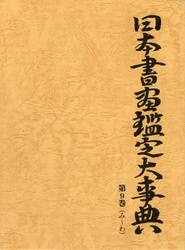 日本書畫鑑定大事典
第9巻(み〜わ)